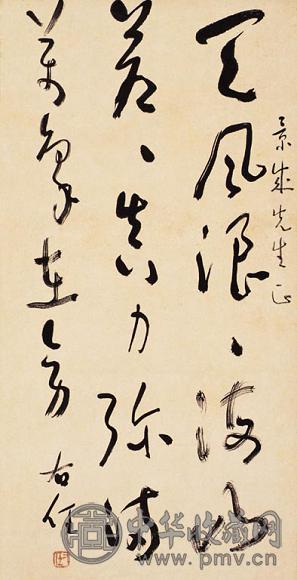 景先生正
天風浪浪海山
蒼蒼真力弥满
萬象在旁
右任
中华收藏网
www.pmv.cn